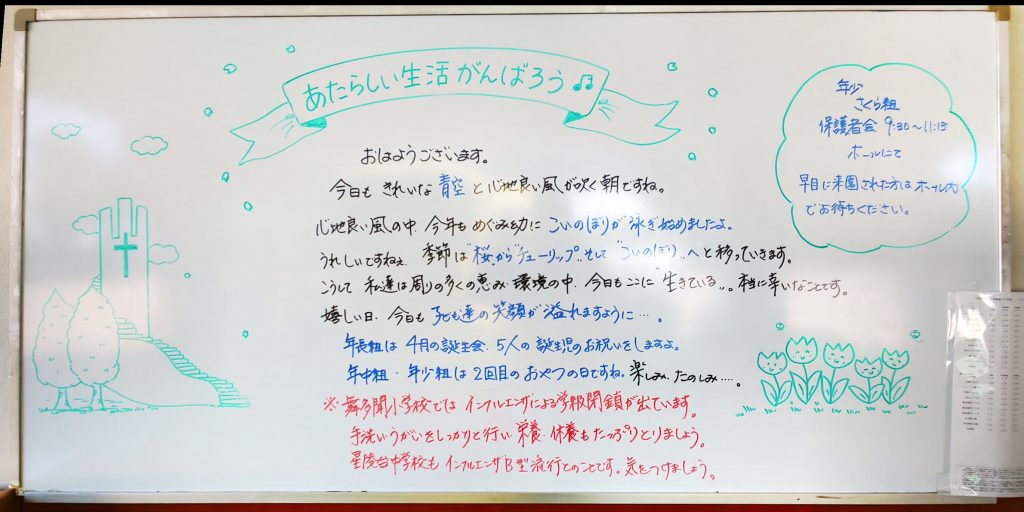 あたらしい生活がんばろう♫
おはようございます。
今日も きれいな 青空 と心地良い風が吹く朝ですね。
心地良い風の中 今年も めぐみ幼に こいのぼりが 泳ぎ始めましたよ。
うれしいですねぇ 季節は"桜"から"チューリップ"そして"こいのぼり"へと移っていきます。
こうして 私達は周りの多くの恵み・環境の中、今日もここに"生きている"。本当に幸いなことです。
嬉しい日、今日も 子ども達の 笑顔が 溢れますように…。
年長組は 4月の誕生会、5人の 誕生児のお祝いをしますよ。
年中組・年少組は 2回目の おやつの日ですね。楽しみ、たのしみ…。
※舞多聞小学校では インフルエンザによる学級閉鎖が出ています。
手洗い・うがいをしっかりと行い、栄養・休養もたっぷりとりましょう。
星陵台中学校も インフルエンザB型流行とのことです。気をつけましょう。
年少
さくら組
保護者会 9:30〜11:15
ホールにて
早目に来園された方は ホール内
でお待ちください。